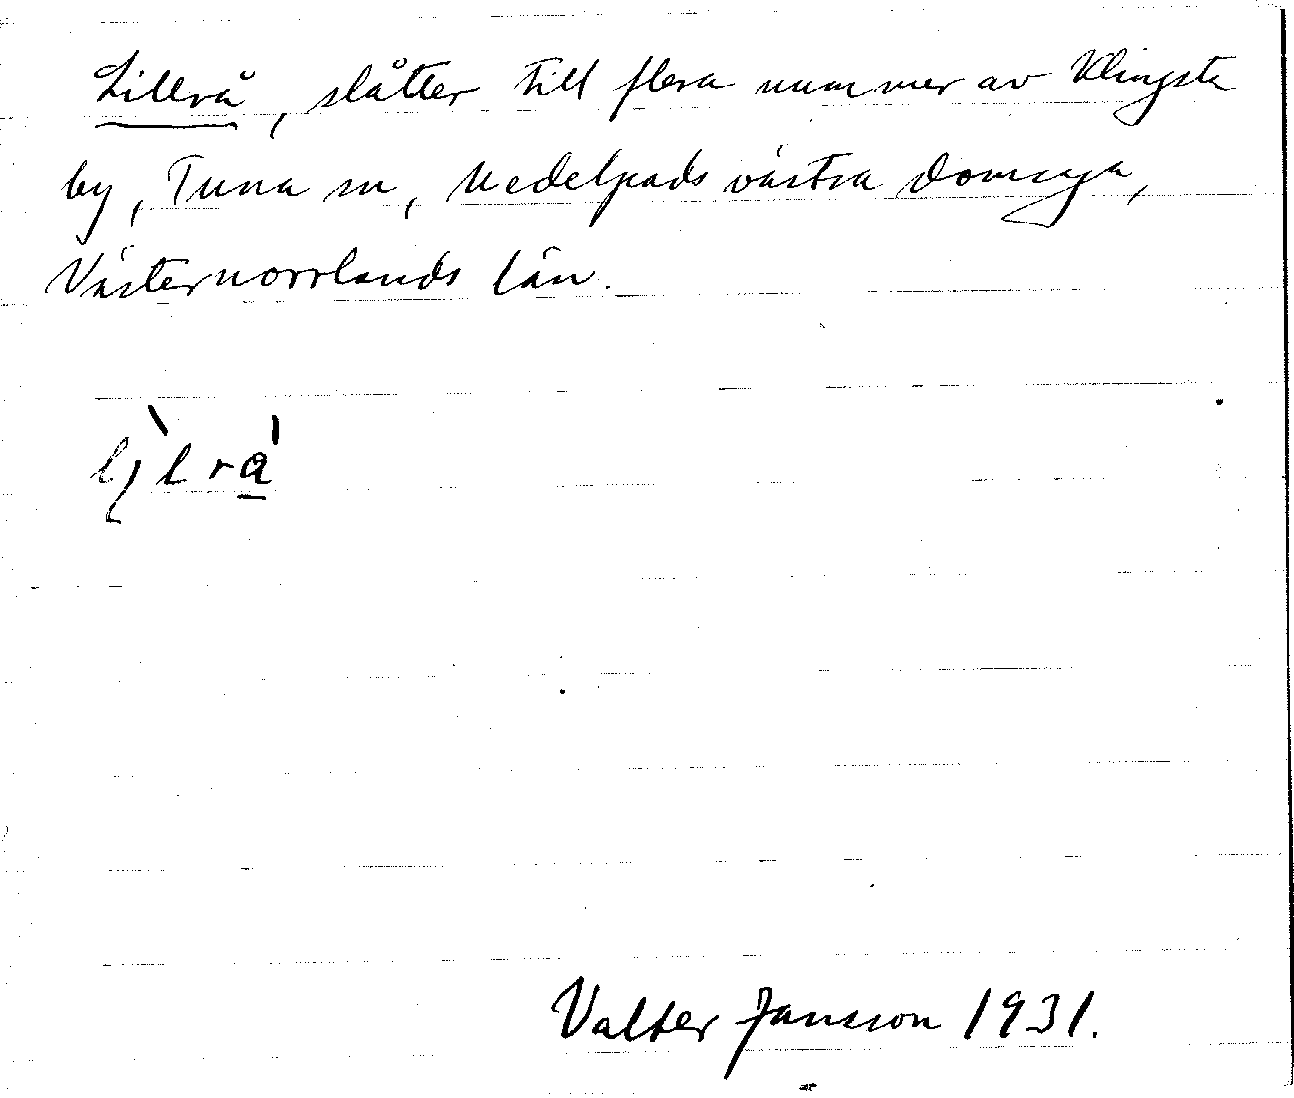 Lillrå, slåtter till flera nummer av Klingsta
by, Tuna sn, Medelpads västra domsaga,
Västernorrlands län.
Valter Jansson 1931.